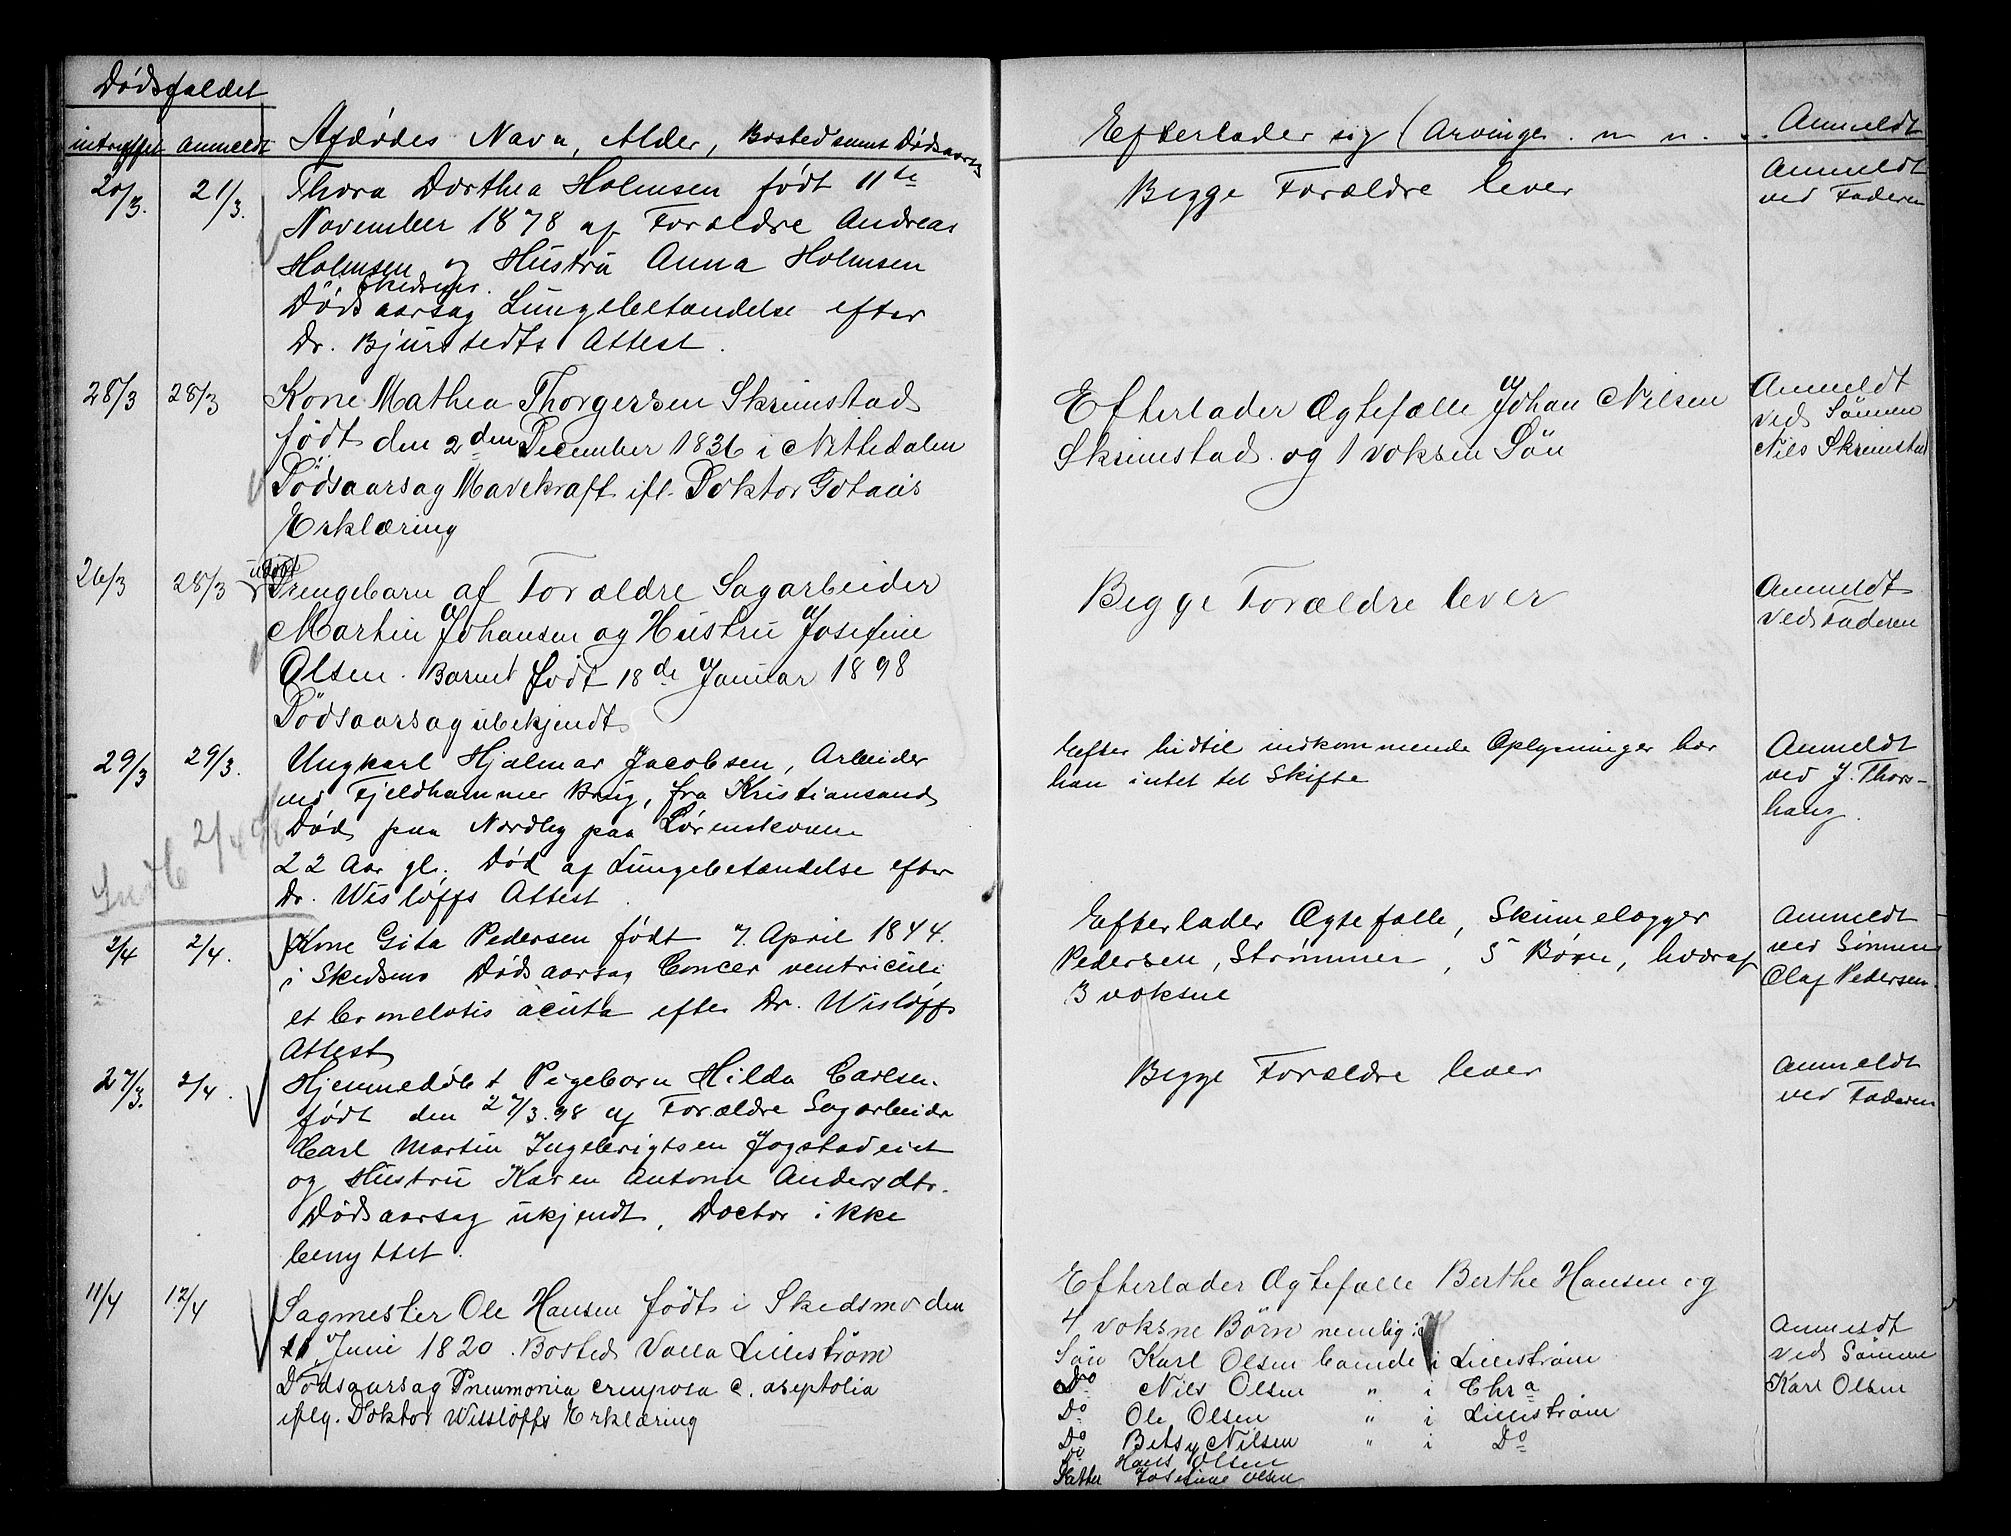 Dødsfaldet
intruffet anmeldt Afdødes Navn, Alder, Bosted samt Dødsaarsag
Efterlader sig (Arvinger. m m. Anmeldt
20/3. 21/3. Thora Dorthea Holmsen født 11te
November 1878 af Forældre Andreas
Holmsen og Hustru Anna Holmsen
Skedsmo.
Dødsaarsag Lungebetændelse efter
Dr. Bjurstedts Attest.
Begge Forældre lever
Anmeldt
ved Faderen
28/3 28/3 Kone Mathea Thorgersen Skrimstad
født den 2den December 1836 i Nittedalen
Dødsaarsag Mavekræft ifl. Doktor
Erklæring
Efterlader Ægtefælle Johan Nilsen
Skrimstad og 1 voksen Sön
Anmeldt
ved Sönnen
Nils Skrimstad
26/3 28/3 udöbt
Drengebarn af Forældre Sagarbeider
Martin Johansen og Hustru Josefine
Olsen. Barnet født 18de Januar 1898
Dödsaarsag ubekjendt
Begge Forældre lever
Anmeldt
ved Faderen
29/3 29/3. Ungkarl Hjalmar Jacobsen, Arbeider
ved Fjeldhammer Brug, fra Kristiansand
Død paa Nordby paa Lørenskoven
22 Aar gl. Død af Lungebetændelse efter
Dr. Wisløffs Attest.
Efter hidtil indkommende Oplysninger har
han intet til Skifte
Anmeldt
ved J. Thors-
haug.
Indb 2/4 98
2/4 2/4. Kone Gita Pedersen født 7. April 1844.
i Skedsmo Dødsaarsag Cancer ventriculi
et acuta efter Dr. Wisløffs
Attest
Efterlader Ægtefælle,
Pedersen, Strømmen, 5 Børn, hvoraf
3 voksne
Anmeldt
ved Sønnen
Olaf Pedersen.
27/3. 2/4. Hjemmedøbt Pigebarn Hilda Carlsen.
født den 27/3.98 af Forældre Sagarbeider
Carl Martin Ingebrigtsen Jogstadeiet
og Hustru Karen Antonie Andersdtr.
Dødsaarsag ukjendt, Doctor ikke
benyttet.
Begge Forældre lever
Anmeldt
ved Faderen
11/4 12/4 Sagmester Ole Hansen født i Skedsmo den
11. Juni 1820. Bosted Volla Lilleström
Dödsaarsag Pneumonia crouposa c.
iflg. Doktor Wisslöffs Erklæring
Efterlader Ægtefælle Berthe Hansen og
4 voksne Börn nemlig:
Sön Karl Olsen boende i Lilleström
Do Nils Olsen " i Chra
Do Ole Olsen " i Lilleström
Do Betsy Nilsen " i Do
Do Hans Olsen
Datter Josefine Olsen
Anmeldt
ved Sönnen
Karl Olsen